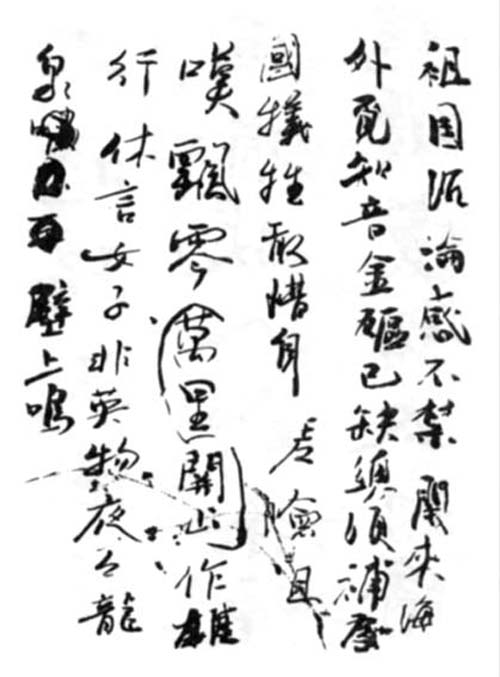 祖国沉淪感不禁閒來海
外覓知音金甌已缺總須補為
國犧牲敢惜身 嗟險阻
嘆飄零萬里關山作雄
行休言女子非英物夜々龍
泉壁上鳴